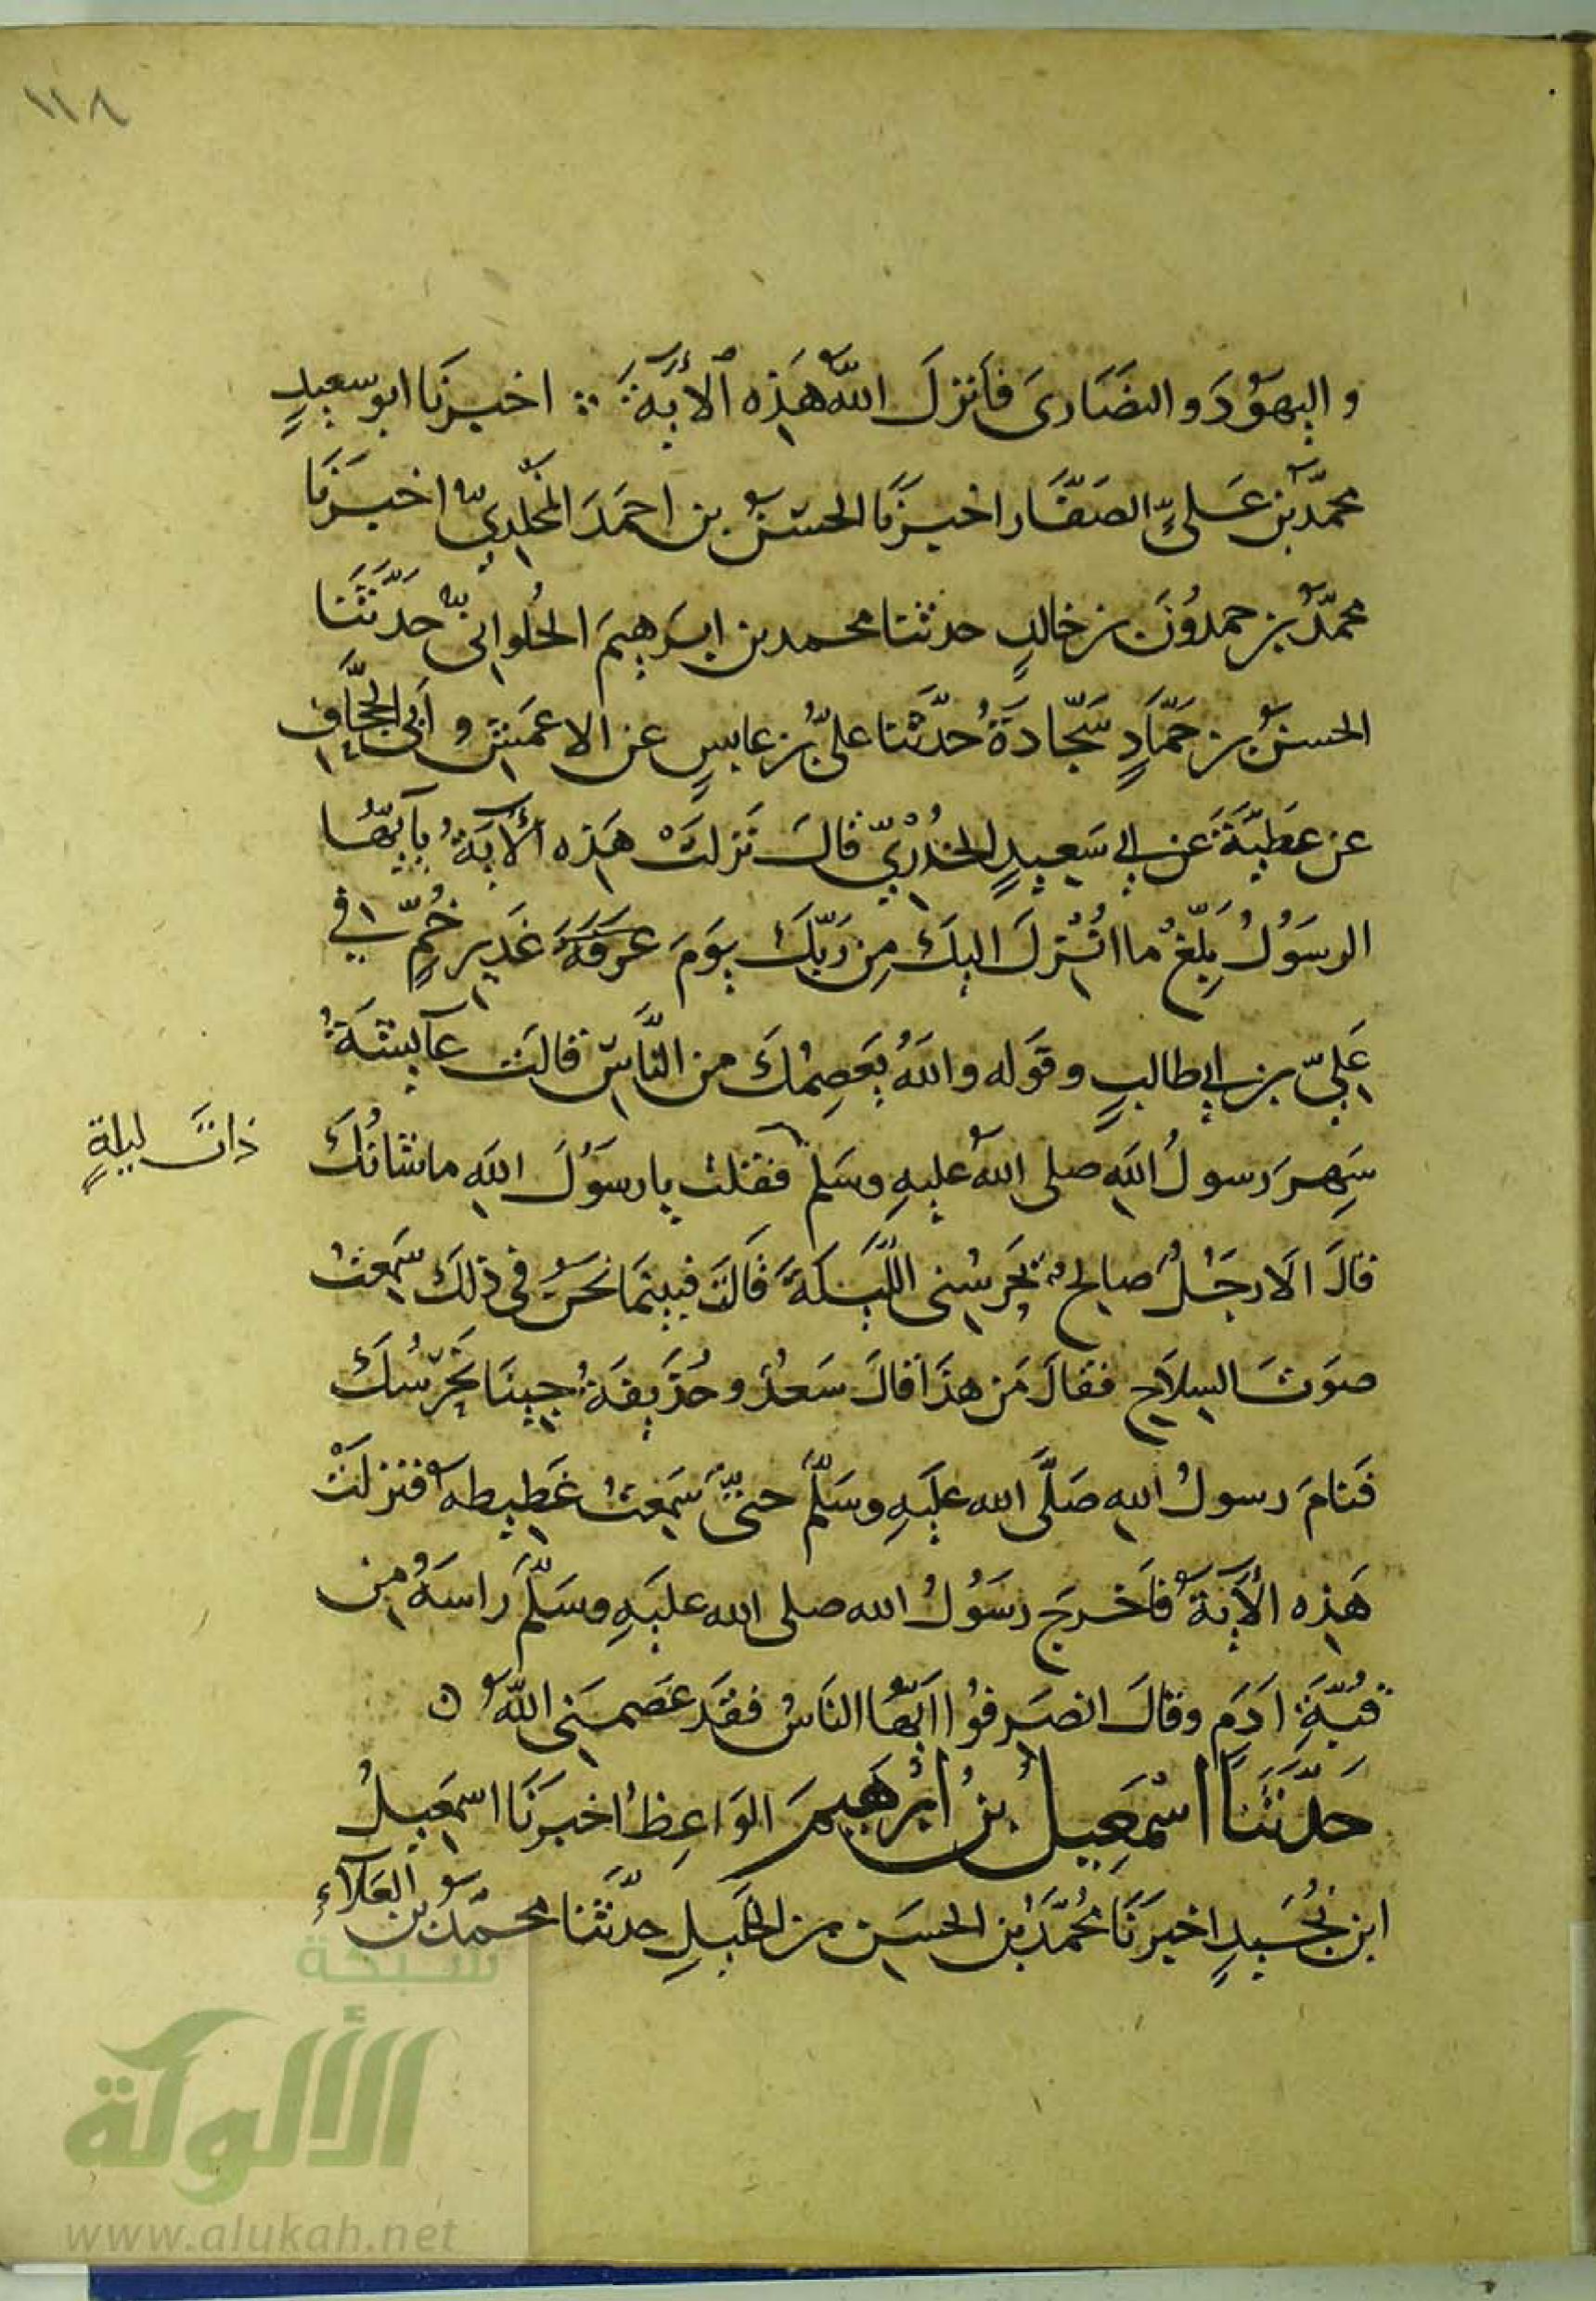 ١١٨
واليهُوْدَ والنصَارىَ فأنزلَ اللهُ هَذِه ٱلأيَةَ ∴ اخبرنَا ابو سعيدٍ
محمّدُ بن عَلىٍّ الصَفَّار اخبرَنَا الحسَنُ بن احمَدَ المَخْلِدِيُّ اخبَرَنَا
محمّدُ بن حمدُونَ بن خالدٍ حدثنا محمد بن ابرَهِيمَ الحُلوانىُّ حَدَّثَنَا
الحسنُ بن حَمَّادٍ سَجَّادَةُ حَدَّثَنا علىُّ بن عابسٍ عن الاعمَشِ وأبى الحجَّافِ
عن عَطِيَّةَ عن ابي سَعيدٍ الخُدْرِيِّ قالَ نَزلتْ هَذِه الأيَةُ يأيّهَا
الرسَوُلُ بَلِّغْ ما اُنْزِلَ اليكَ مِن رَبّكَ يوَمَ غَدِيرِ خُمٍّ في
عَلِيّ بن ابي طالبٍ وقوَله واللهُ يَعصِمُكَ من النَّاسِ قالَت عآيشَةُ
سَهِرَ رسولُ اللهِ صلى اللهُ عليهِ وسَلّمَ فقلت يا رسوَلَ اللهِ ما شانُكَ
ذاتَ ليلةٍ
قالَ الَا رجَلٌ صالحٌ يَحرسُنى اللَّيلَةَ قَالَت فبينمَا نحَنُ في ذلكَ سَمِعتُ
صوَتَ السِلاَحِ فقالَ مَن هذَا قالَ سَعْدٌ وحُذَيفَةُ جِينَا نَحرُسُكَ
فَنامَ رسولُ اللهِ صَلَّى الله عليَهِ وسَلَّمَ حتىَّ سَمِعتُ غَطِيطهُ فنزلَتْ
هَذِه الأيَةُ فأَخرجَ رسَوُلُ الله صلى الله عليَهِ وسَلَّمَ راسَهُ مِن
قُبَّةِ اَدَمٍ وقالَ انصَرفوُا اَيّهُا النَاسُ فقَد عَصمَنِى اللهُ ن
حَدّثَنَا اسْمَعِيلُ بنُ ابْرَهيمَ الوَاعِظُ اخبرنَا اسمَعِيلُ
ابن نُجَيدٍ اخبرَنَا مُحمَّدُ بن الحسَنِ بن الخَليلِ حدّثنَا محَمّدُ بن العَلآءِ
شبكة
الألوكة
www.alukah.net